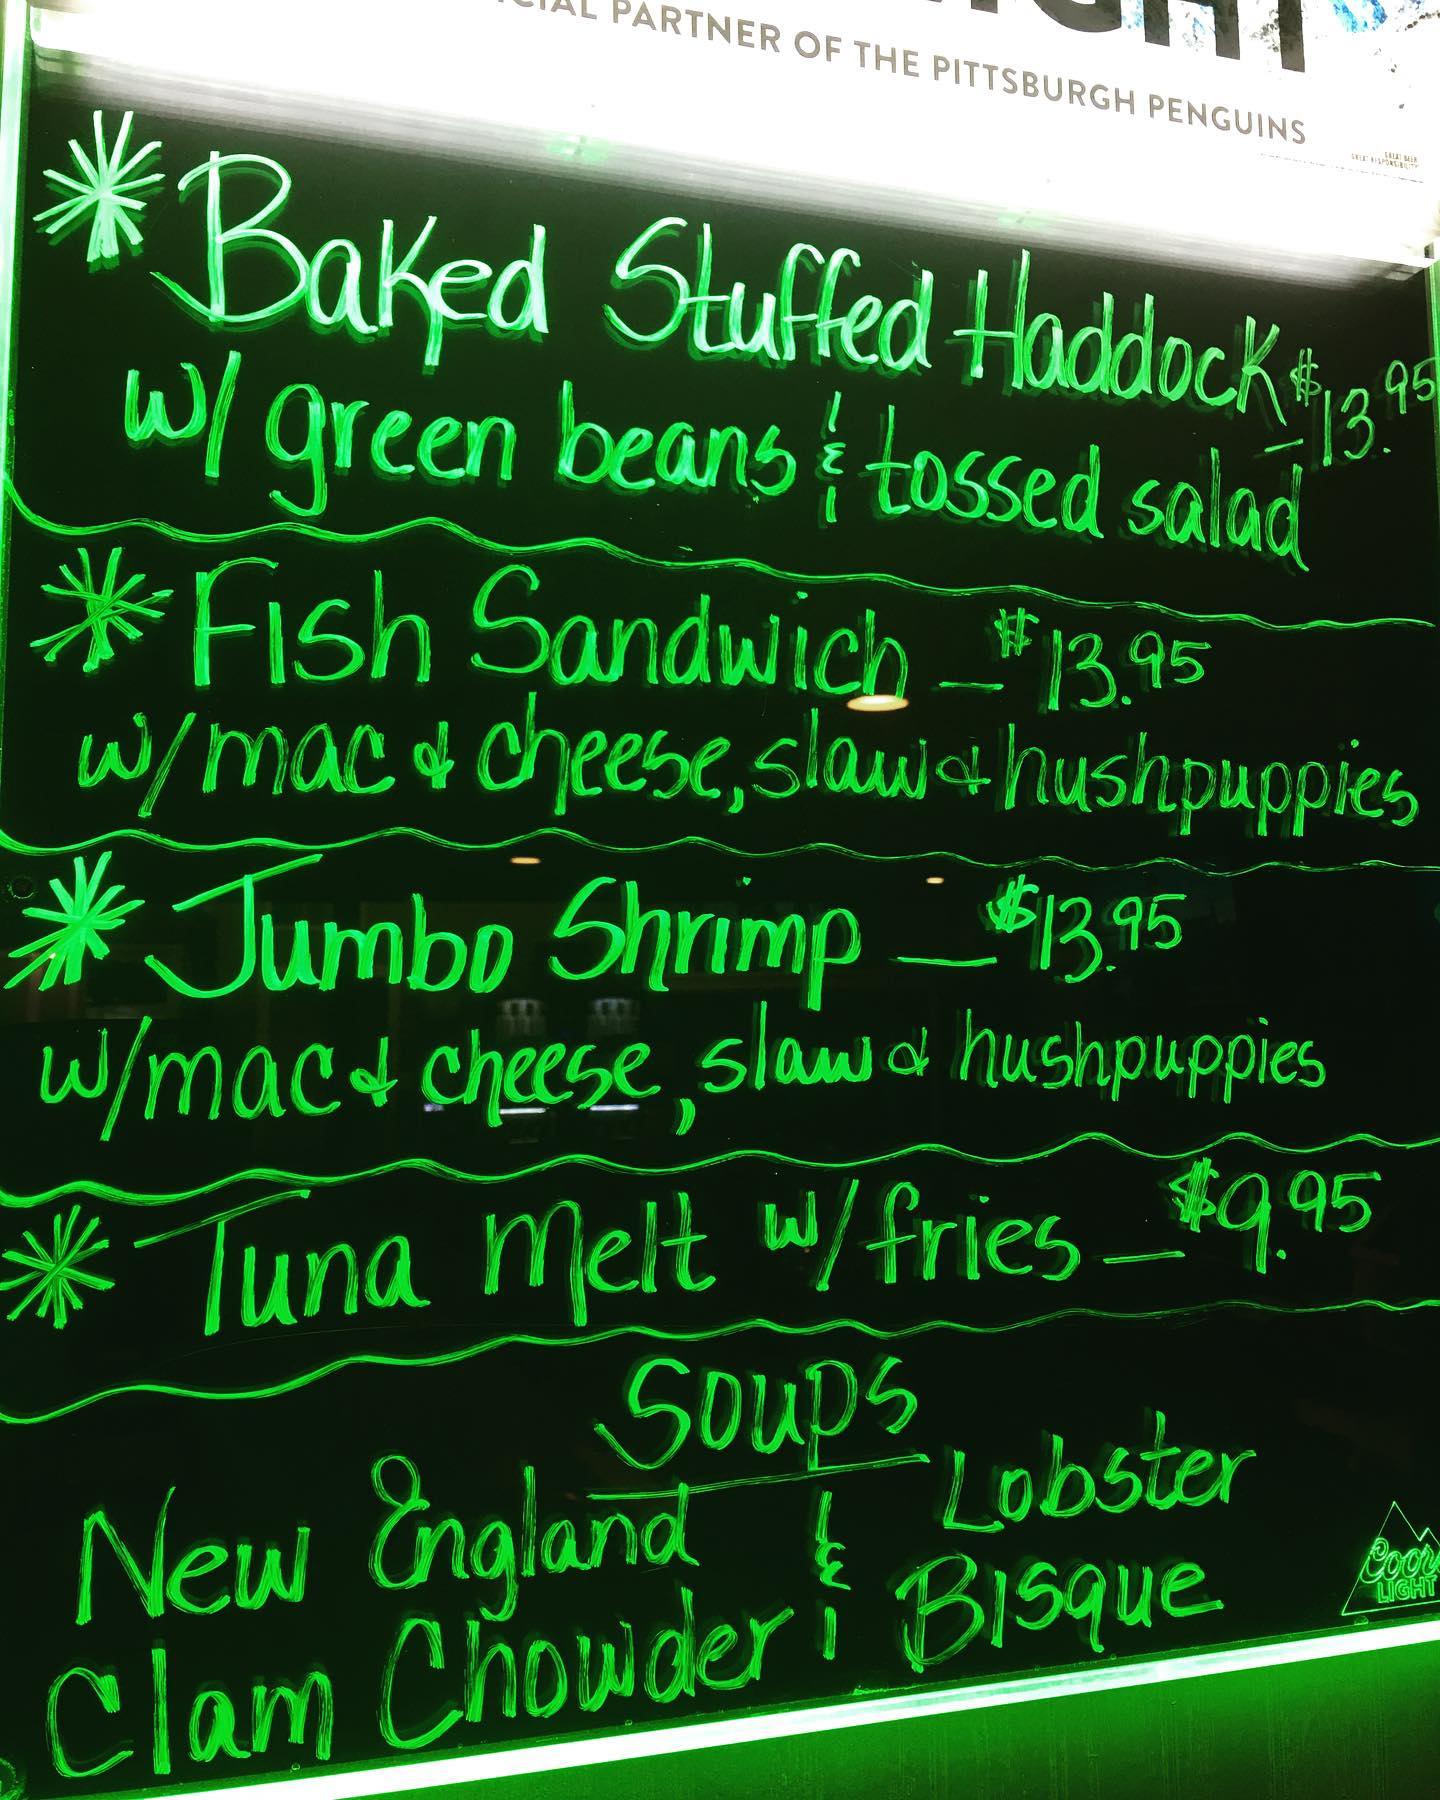 PARTNER OF THE PITTSBURGH PENGUINS
GREAT BEER
GREAT RESPONSIBILITY
* Baked Stuffed Haddock - $13.95
w/ green beans & tossed salad
* Fish Sandwich - $13.95
w/ mac & cheese, slaw & hushpuppies
* Jumbo Shrimp - $13.95
w/ mac & cheese, slaw & hushpuppies
* Tuna Melt w/ fries - $9.95
Soups
New England & Lobster
Clam Chowder Bisque
Coors
LIGHT